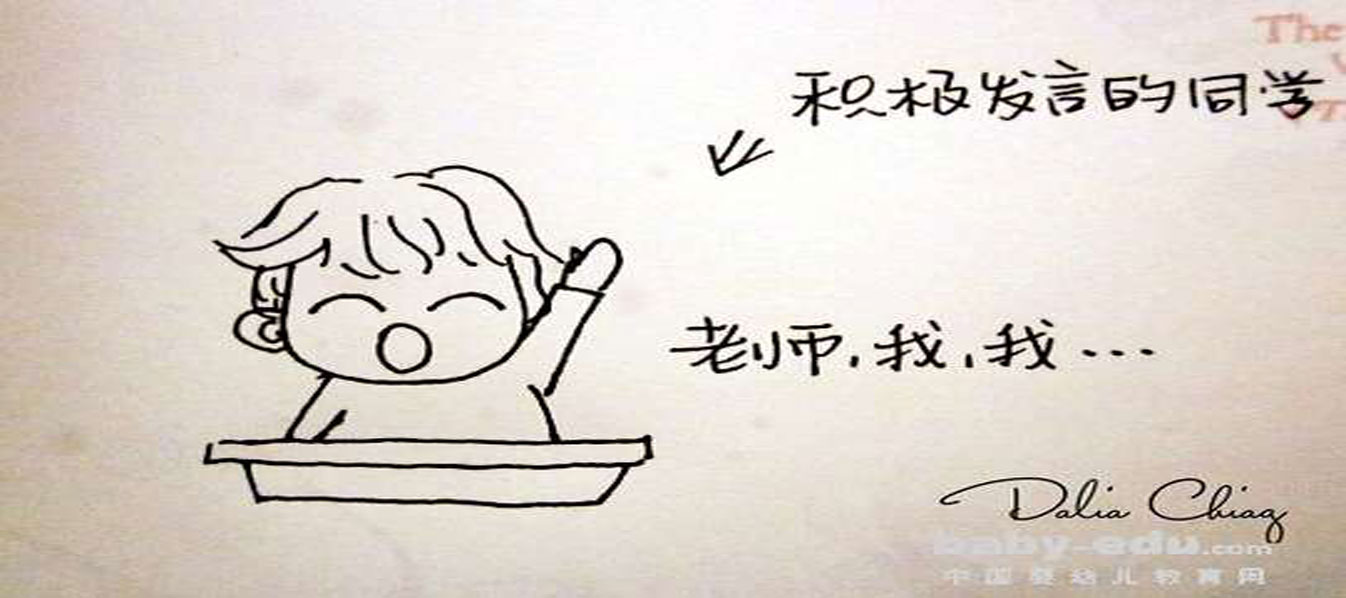 The
积极发言的同学
老师,我,我...
Dalia Chiag
baby-edu.com
中国婴幼儿教育网